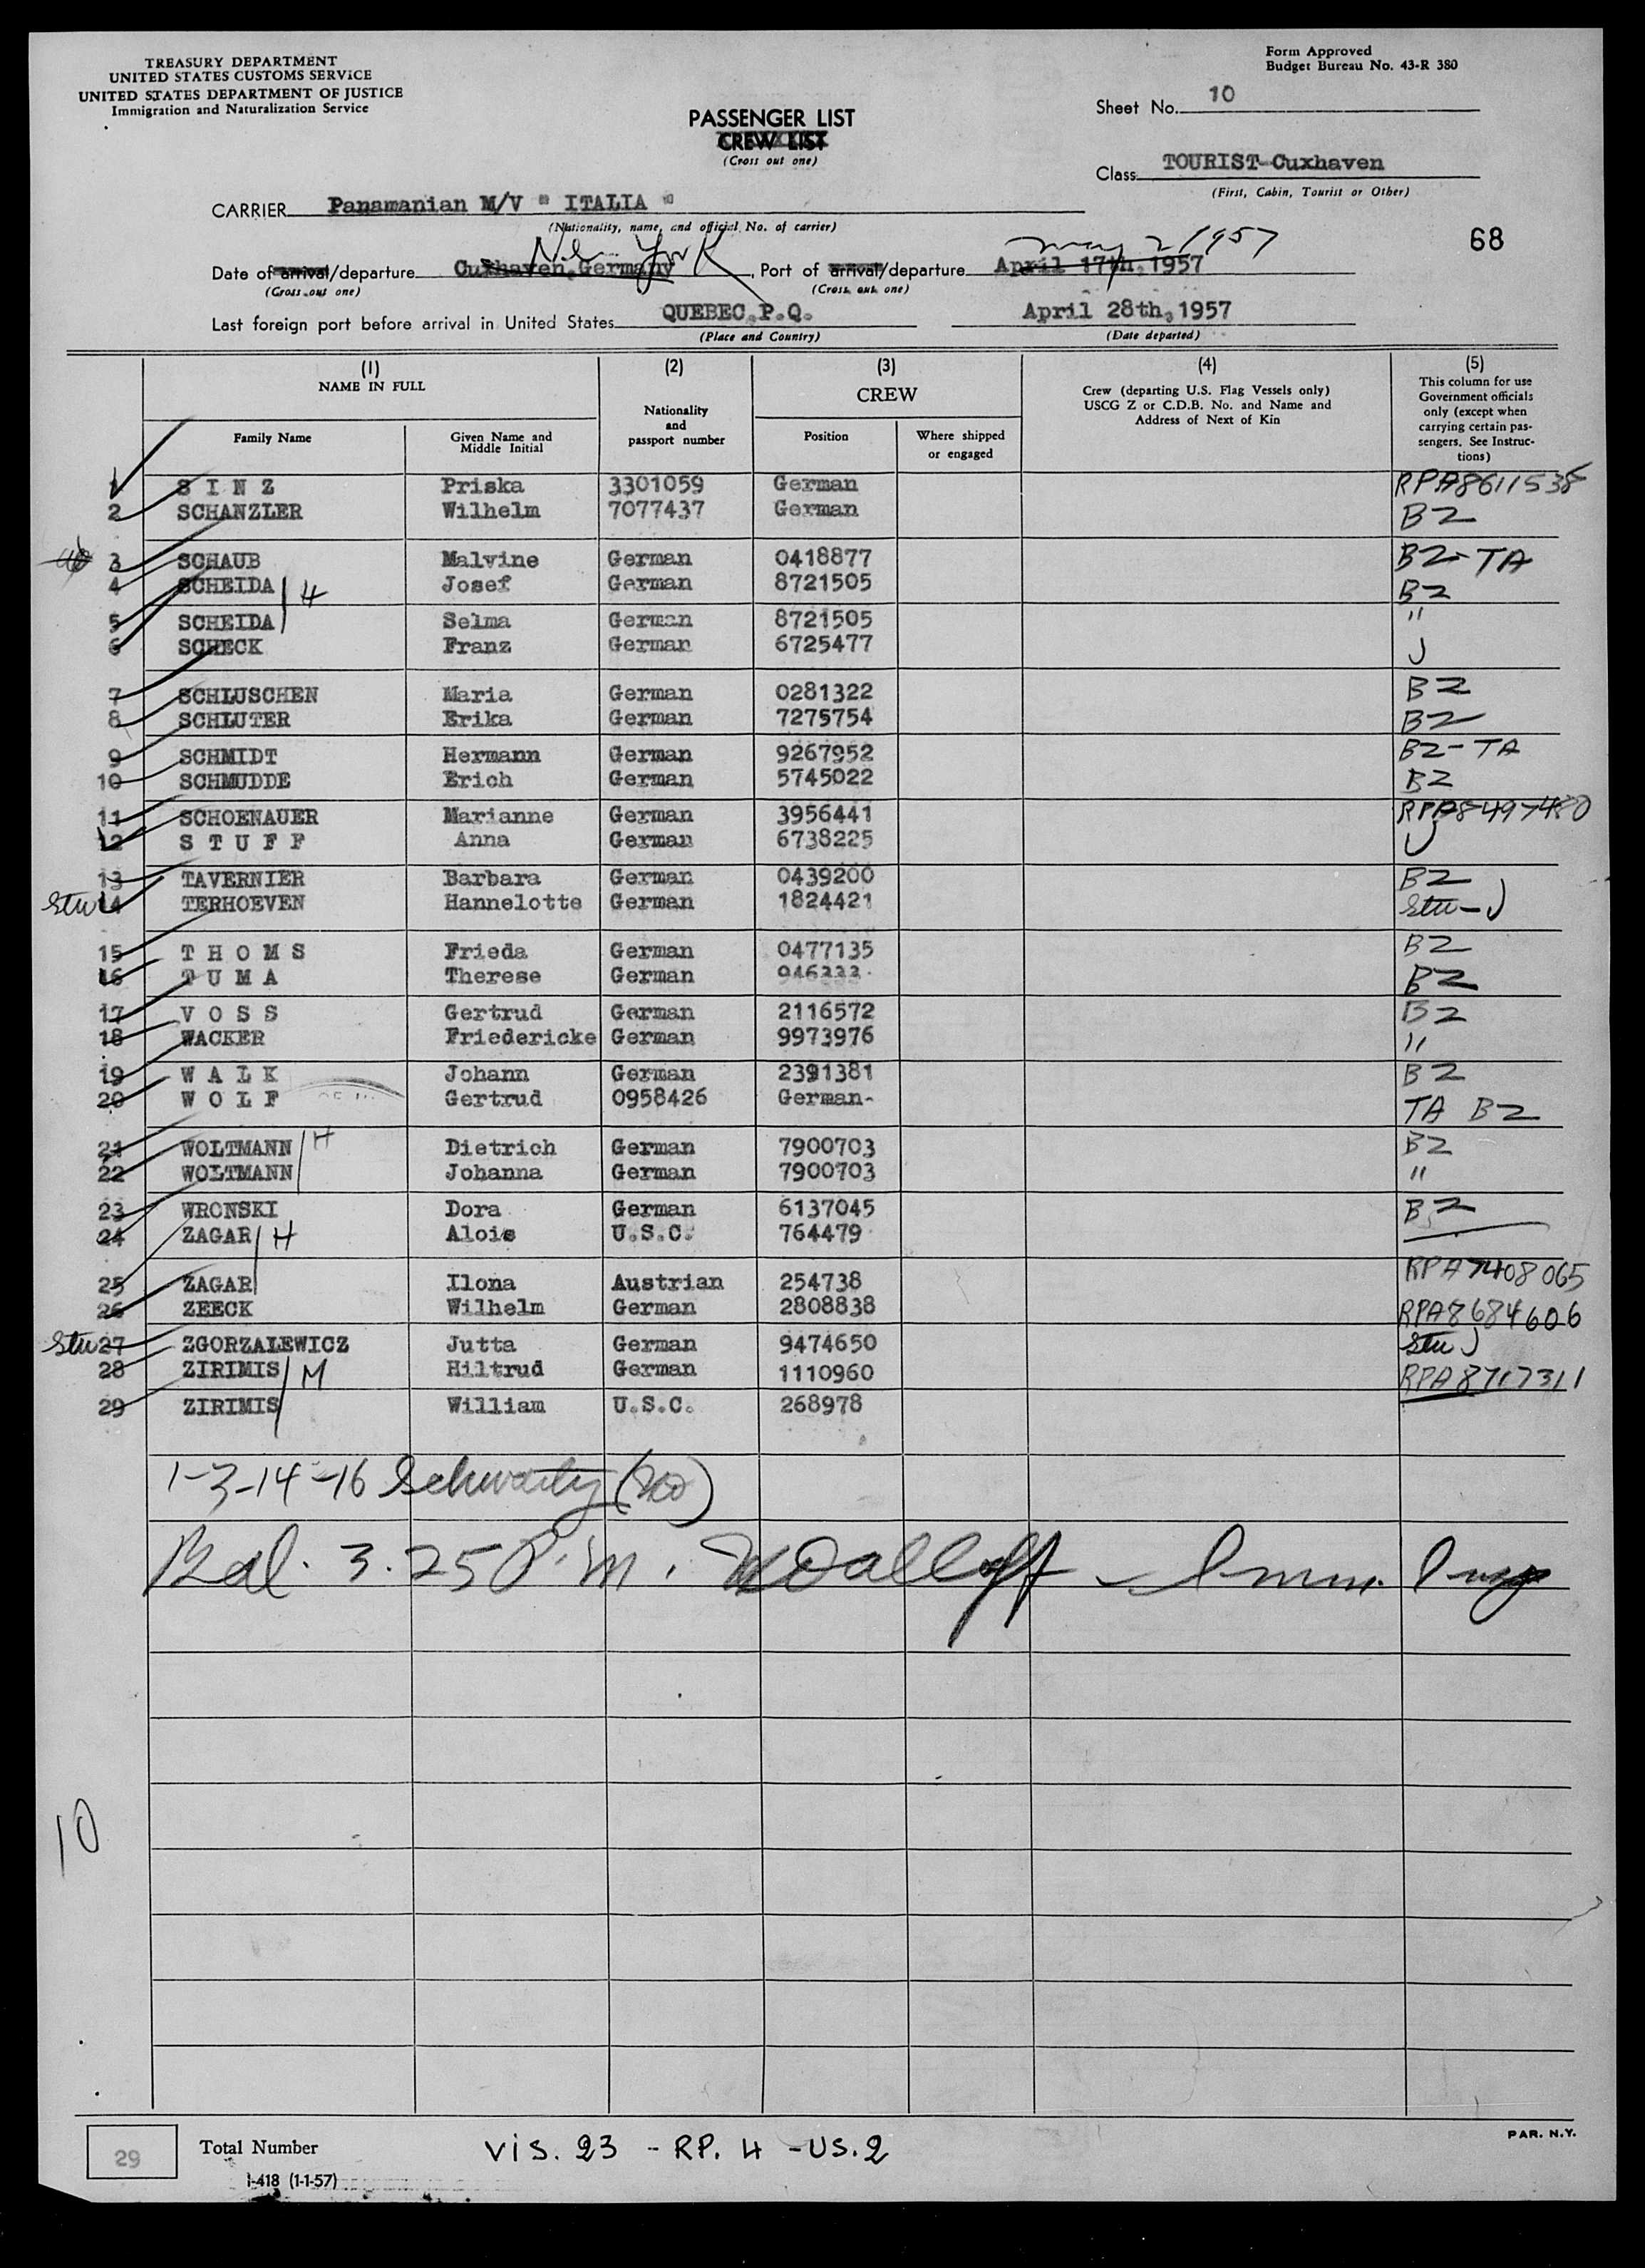 TREASURY DEPARTMENT
UNITED STATES CUSTOMS SERVICE
UNITED STATES DEPARTMENT OF JUSTICE
Immigration and Naturalization Service
Form Approved
Budget Bureau No. 43-R 380
Sheet No. 10
PASSENGER LIST
CREW LIST
(Cross out one)
Class TOURIST-Cuxhaven
(First, Cabin, Tourist or Other)
CARRIER Panamanian M/V " ITALIA "
(Nationality, name, and official No. of carrier)
68
New York may 2 1957
Date of arrival/departure Cuxhaven, Germany, Port of arrival/departure April 17th, 1957
(Cross out one) (Cross out one)
Last foreign port before arrival in United States QUEBEC, P.Q. April 28th, 1957
(Place and Country) (Date departed)
(1) NAME IN FULL
Family Name
Given Name and Middle Initial
(2)
Nationality and passport number
(3)
CREW
Position
Where shipped or engaged
(4)
Crew (departing U.S. Flag Vessels only)
USCG Z or C.D.B. No. and Name and
Address of Next of Kin
(5)
This column for use
Government officials
only (except when
carrying certain pas-
sengers. See Instruc-
tions)
1 S I N Z Priska 3301059 German RPA8611538
2 SCHANZLER Wilhelm 7077437 German B2
3 SCHAUB Malvine German 0418877 B2-TA
4 SCHEIDA H Josef German 8721505 B2
5 SCHEIDA Selma German 8721505 "
6 SCHECK Franz German 6725477 J
7 SCHLUSCHEN Maria German 0281322 B2
8 SCHLUTER Erika German 7275754 B2
9 SCHMIDT Hermann German 9267952 B2-TA
10 SCHMUDDE Erich German 5745022 B2
11 SCHOENAUER Marianne German 3956441 RPA8497480
12 S T U F F Anna German 6738225 J
13 TAVERNIER Barbara German 0439200 B2
Stu 14 TERHOEVEN Hannelotte German 1824421 Stu-J
15 T H O M S Frieda German 0477135 B2
16 T U M A Therese German 946333 B2
17 V O S S Gertrud German 2116572 B2
18 WACKER Friedericke German 9973976 "
19 W A L K Johann German 2391381 B2
20 W O L F Gertrud 0958426 German- TA B2
21 WOLTMANN H Dietrich German 7900703 B2
22 WOLTMANN Johanna German 7900703 "
23 WRONSKI Dora German 6137045 B2
24 ZAGAR H Alois U.S.C. 764479
25 ZAGAR Ilona Austrian 254738 RPA7408065
26 ZEECK Wilhelm German 2808838 RPA8684606
Stu 27 ZGORZALEWICZ Jutta German 9474650 Stu J
28 ZIRIMIS M Hiltrud German 1110960 RPA8717311
29 ZIRIMIS William U.S.C. 268978
1-3-14-16
Bal. 3.25 P.M. Imm. Insp
10
29
Total Number
VIS. 23 - RP. 4 - US. 2
I-418 (1-1-57)
PAR. N.Y.